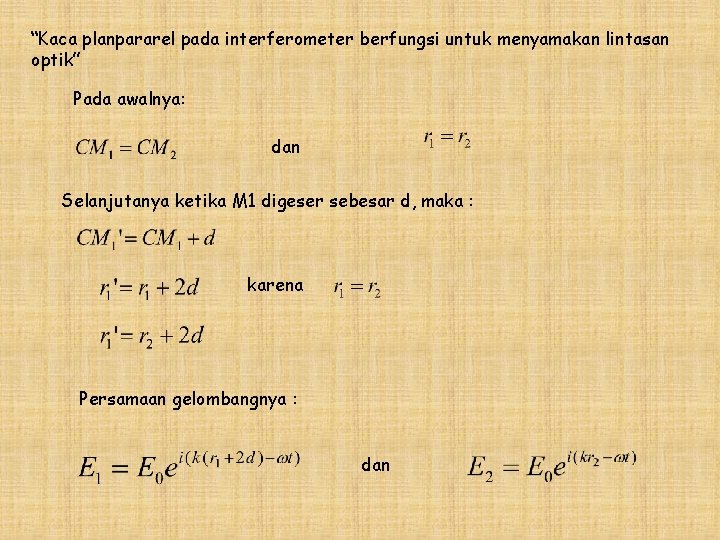 “Kaca planpararel pada interferometer berfungsi untuk menyamakan lintasan
optik”
Pada awalnya:
CM₁ = CM₂ dan r₁ = r₂
Selanjutanya ketika M1 digeser sebesar d, maka :
CM₁' = CM₁ + d
r₁' = r₁ + 2d karena r₁ = r₂
r₁' = r₂ + 2d
Persamaan gelombangnya :
E₁ = E₀e^{i(k(r₁+2d)−ωt)} dan E₂ = E₀e^{i(kr₂−ωt)}